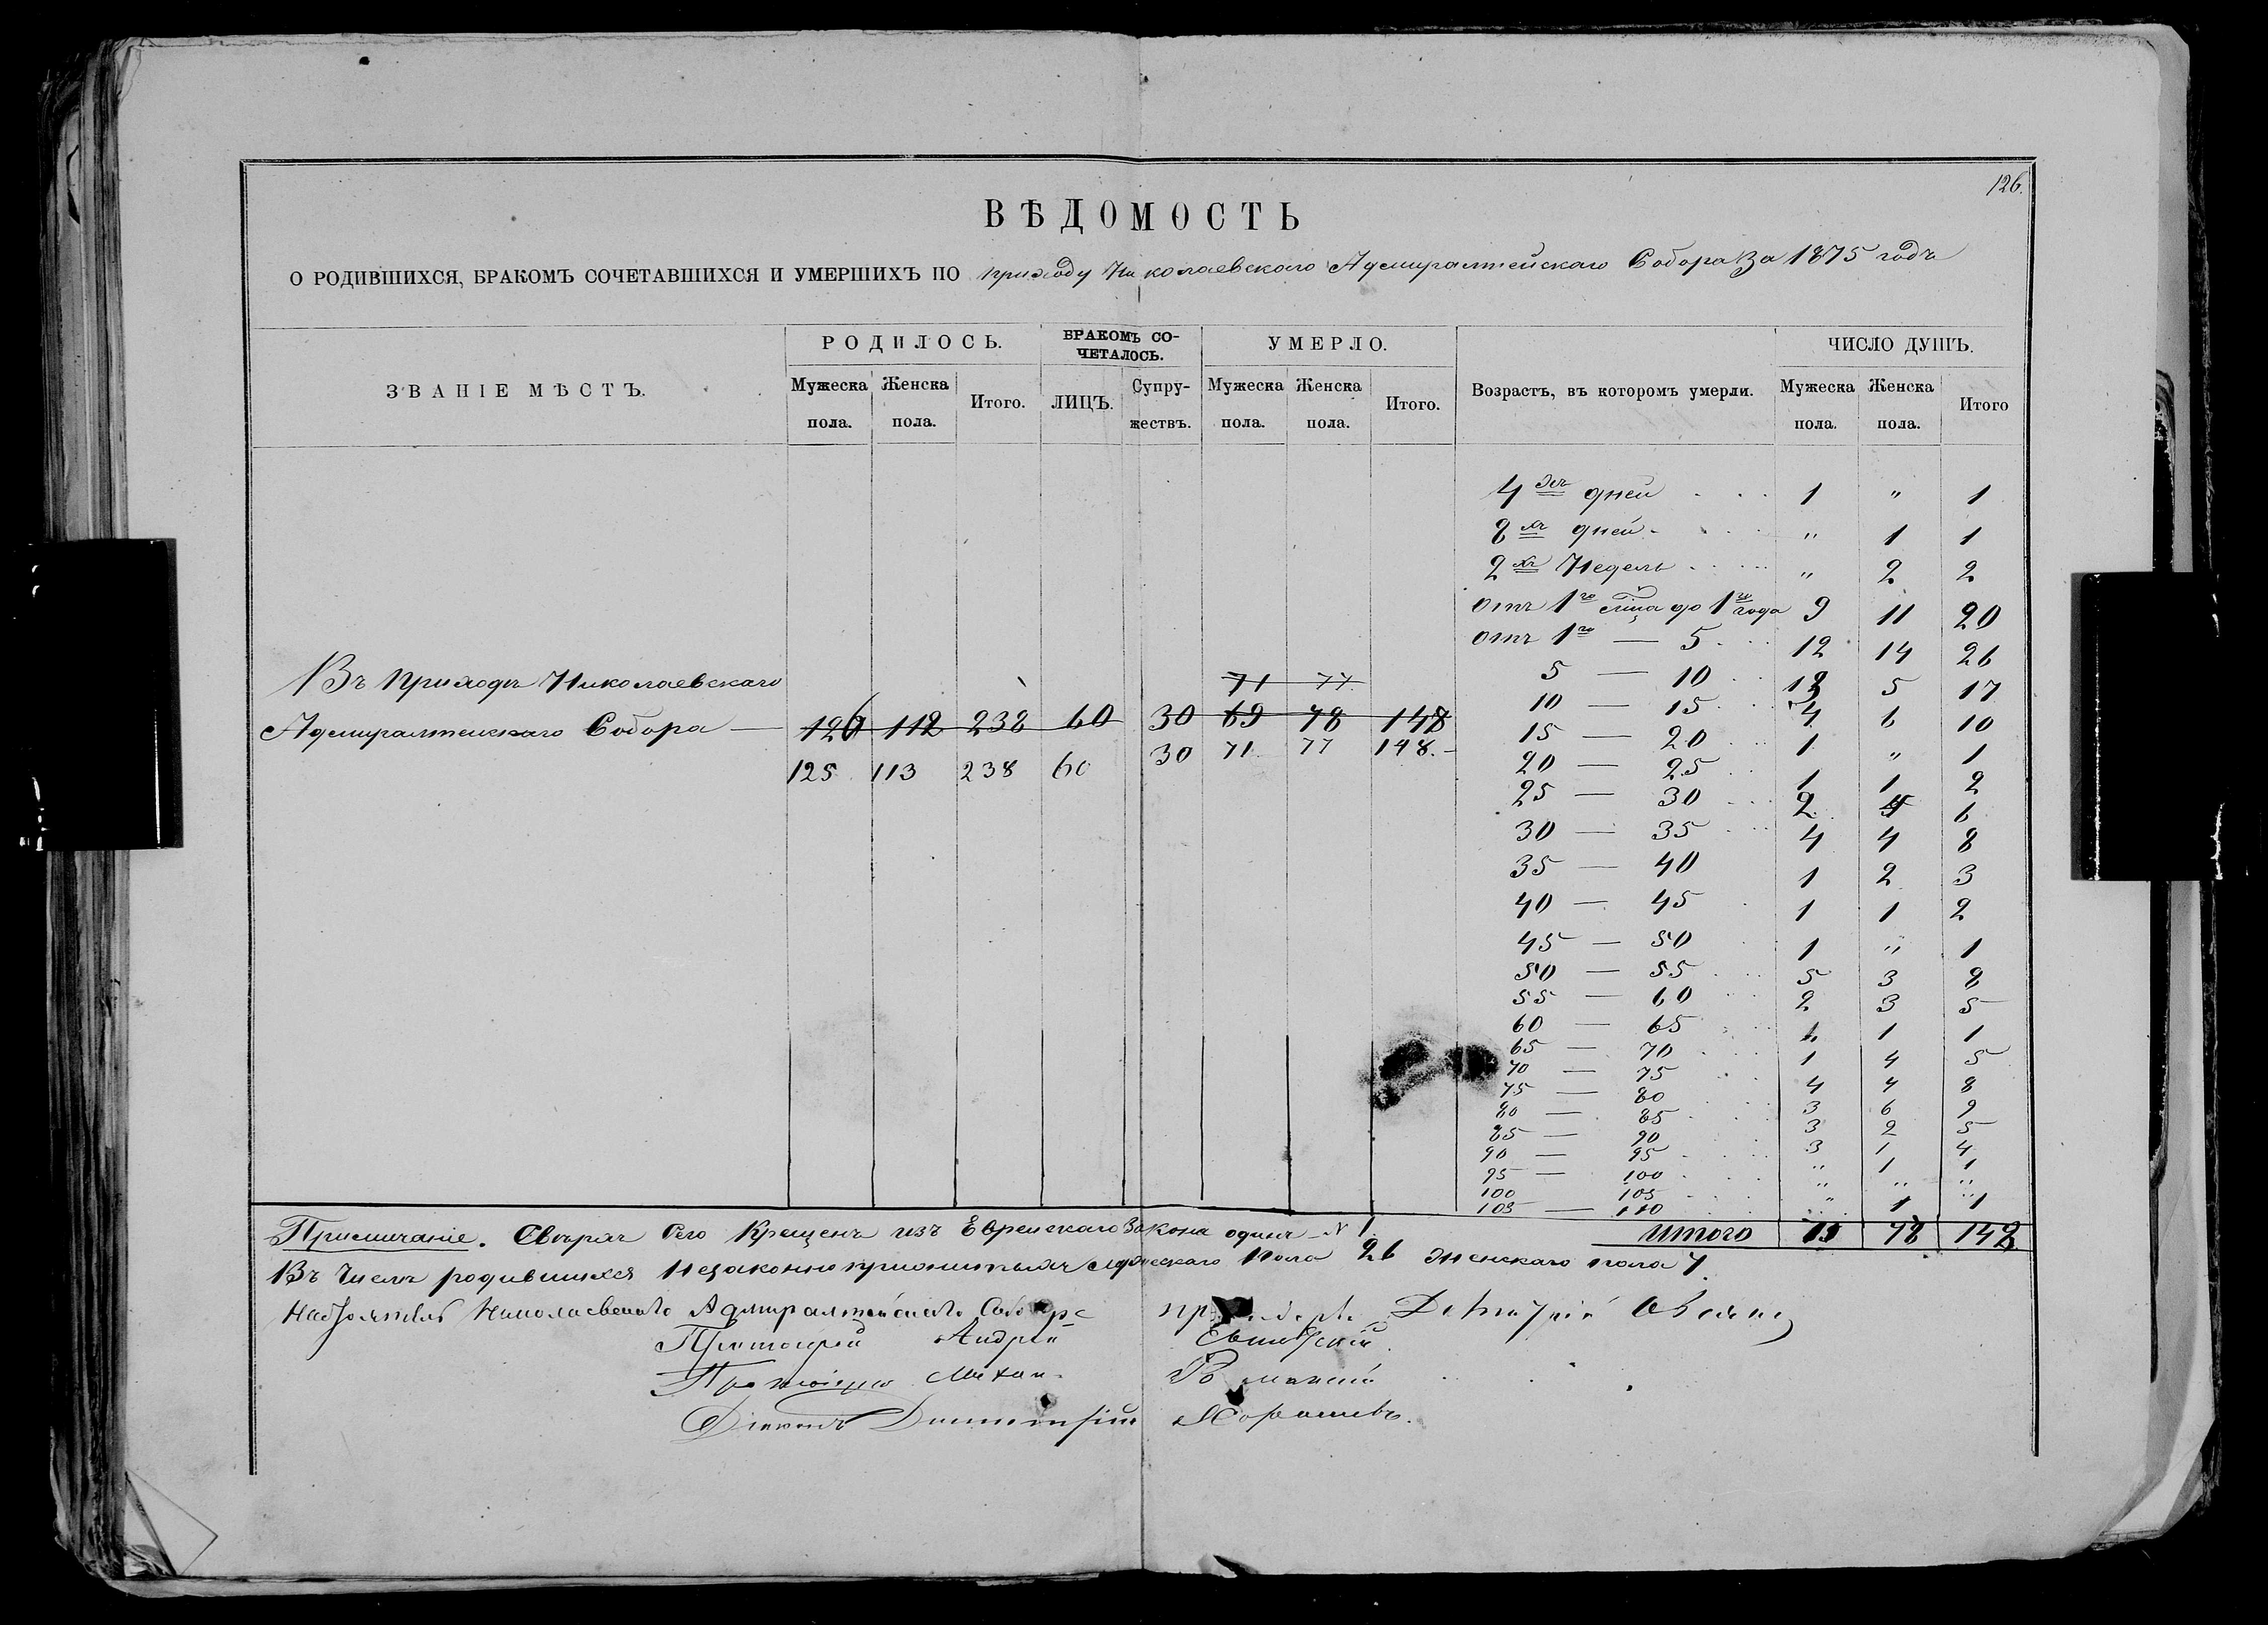 126.
ВѢДОМОСТЬ
О РОДИВШИХСЯ, БРАКОМЪ СОЧЕТАВШИХСЯ И УМЕРШИХЪ ПО приходу Николаевскаго Адмиралтейскаго Собора За 1875 годъ
ЗВАНІЕ МѢСТЪ.
РОДИЛОСЬ.
Мужеска пола.
Женска пола.
Итого.
БРАКОМЪ СО-
ЧЕТАЛОСЬ.
ЛИЦЪ.
Супру-
жествъ.
УМЕРЛО.
Мужеска пола.
Женска пола.
Итого.
Возрастъ, въ которомъ умерли.
ЧИСЛО ДУШЪ.
Мужеска пола.
Женска пола.
Итого
Въ приходѣ Николаевскаго
71 77
Адмиралтейскаго Собора — 126 112 238 60 30 69 78 148
125 113 238 60 30 71 77 148.
4хъ дней 1 " 1
8хъ дней " 1 1
2хъ Недель " 2 2
отъ 1го мца до 1го года 9 11 20
отъ 1го — 5 12 14 26
5 — 10 12 5 17
10 — 15 4 6 10
15 — 20 1 " 1
20 — 25 1 1 2
25 — 30 2 4 6
30 — 35 4 4 8
35 — 40 1 2 3
40 — 45 1 1 2
45 — 50 1 " 1
50 — 55 5 3 8
55 — 60 2 3 5
60 — 65 1 1
65 — 70 1 4 5
70 — 75 4 4 8
75 — 80 3 6 9
80 — 85 3 2 5
85 — 90 3 1 4
90 — 95 " 1 1
95 — 100 " " "
100 105
105 — 110 " 1 1
Итого 78 148
Примичаніе. Сверхъ Сего Крещенъ изъ Еврейскаго Закона одинъ N 1.
Въ Числѣ родившихся Незаконноприжитыхъ мужескаго Пола 26 женскаго пола 7.
Настоятель Николаевскаго Адмиралтейскаго Собора
Протоіерей Андрей
Протоіерей Михаи
Діаконъ